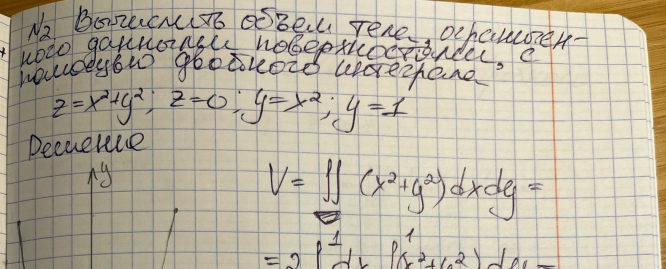 N2 Вычислить объем тела, ограничен-
ного данными поверхностями, с
помощью двойного интеграла
z=x²+y²; z=0; y=x²; y=1
Решение
y
V = ∬ (x²+y²) dx dy =
1 1
= 2 ∫ dx ∫(x²+y²) dy =